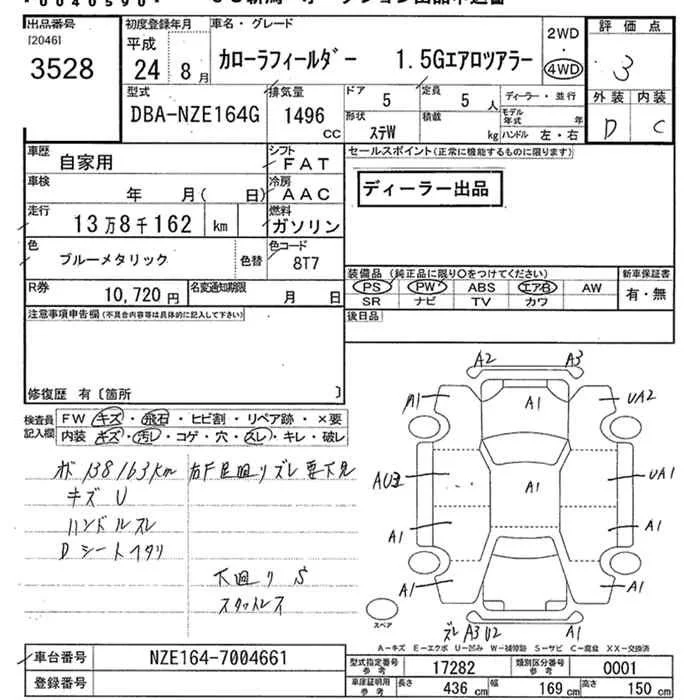 出品番号 初度登録年月 車名・グレード 2WD ・ 4WD 評価点
[2046]
3528 平成 24年 8月 カローラフィールダー 1.5Gエアロツアラー 3
型式 排気量 ドア 定員 ディーラー・並行 外装 内装
DBA-NZE164G 1496 CC 5 5人 モデル年式 年 D C
形状 ステW 積載 kg ハンドル 左・右
車歴 自家用 シフト FAT セールスポイント(正常に機能するものに限ります)
車検 年 月( 日) 冷房 AAC ディーラー出品
走行 13万8千162 km 燃料 ガソリン
色 ブルーメタリック 色替 色コード 8T7
装備品(純正品に限り○をつけてください) 新車保証書
R券 10,720円 名変通知期限 月 日 PS PW ABS エアB AW 有・無
SR ナビ TV カワ
注意事項申告欄(不具合内容等は具体的に記入して下さい) 後日品
修復歴 有〔箇所 〕
検査員記入欄 FW キズ・飛石・ヒビ割・リペア跡・×要
内装 キズ・汚れ・コゲ・穴・スレ・キレ・破レ
138163km
キズ U
ハンドルスレ
Dシートヘタリ
下廻り S
スタットレス
A2 A3
A1 A1 UA2
A1 UA1
A1 A1
A1 A1
スペア
ズレ A3 U2 A1
A-キズ E-エクボ U-凹み W-補修跡 S-サビ C-腐蝕 XX-交換済
車台番号 NZE164-7004661
登録番号
型式指定番号 参考 17282 類別区分番号 参考 0001
車庫証明用 参考 長さ 436 cm 幅 169 cm 高さ 150 cm